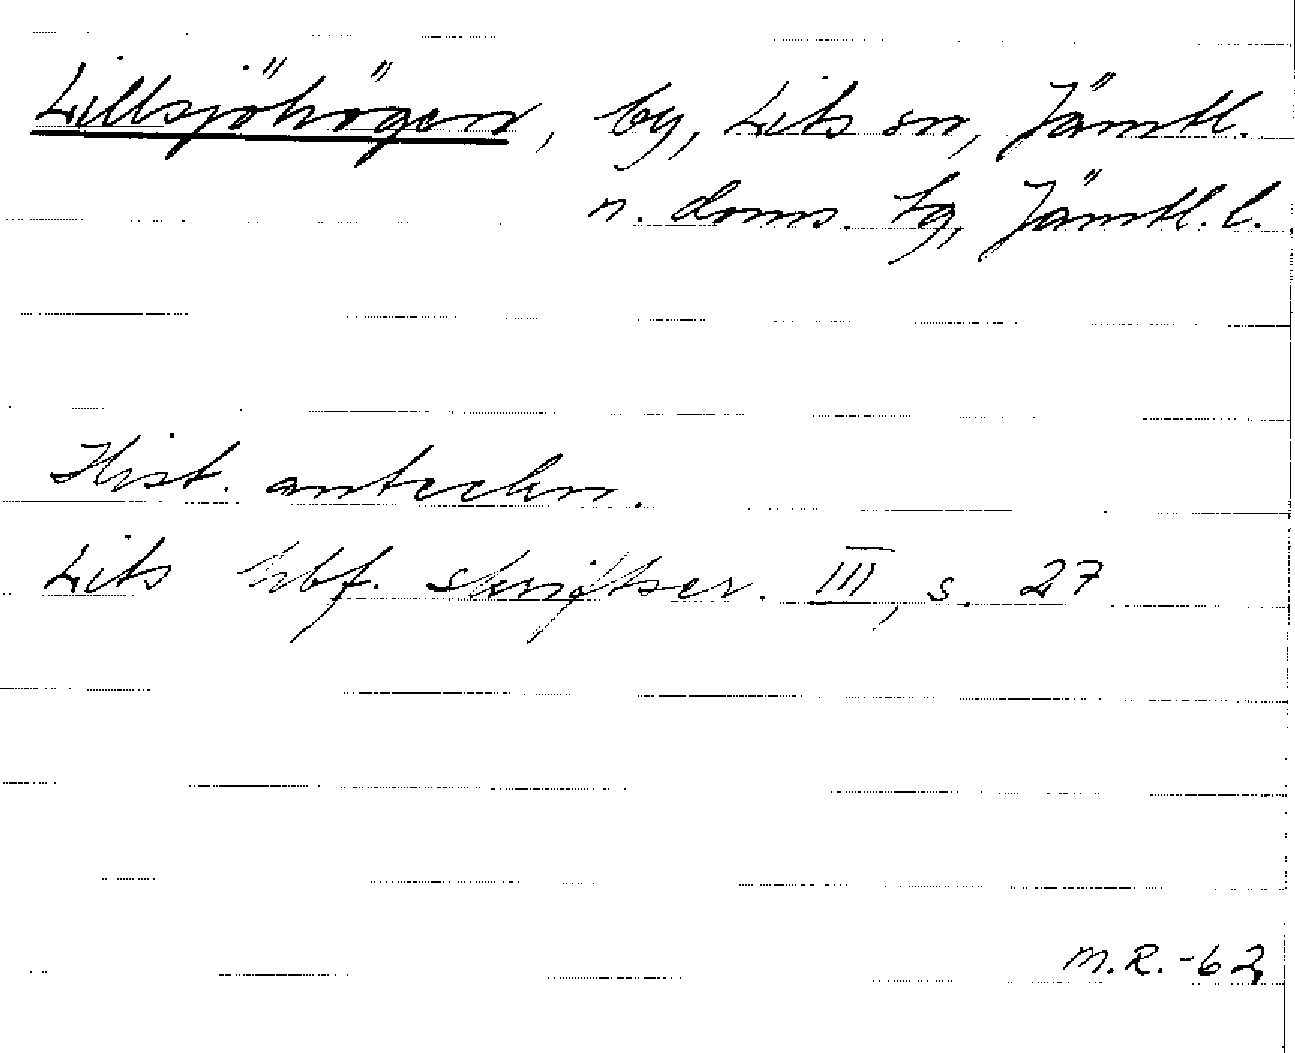 Lillsjöhögen, by, Lits sn, Jämtl.
n. doms. tg, Jämtl. l.
Hist. anteckn.
Lits hbf. skriftser. III, s. 27
M.R. -62